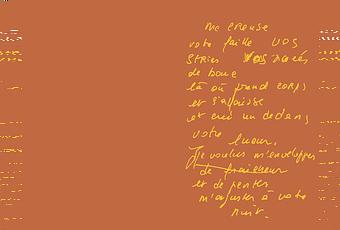 me creuse
votre faille vos
stries vos
de boue
là où prend corps
et s'aiguise
et crée un dedans
votre
lueur,
Je voulus m'envelopper
de fraicheur
et de pentes
m'ajuster à votre
nuit.